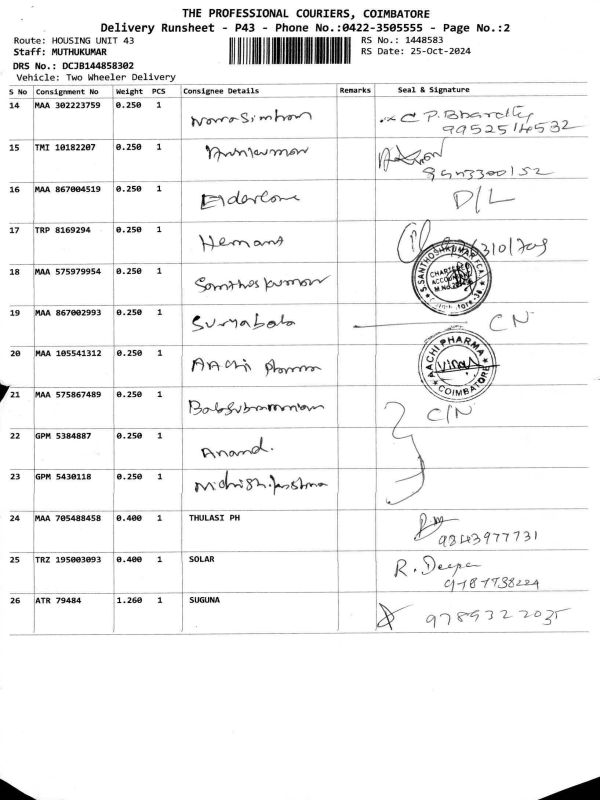 THE PROFESSIONAL COURIERS, COIMBATORE
Delivery Runsheet - P43 - Phone No.:0422-3505555 - Page No.:2
Route: HOUSING UNIT 43
RS No.: 1448583
Staff: MUTHUKUMAR
RS Date: 25-Oct-2024
DRS No.: DCJB144858302
Vehicle: Two Wheeler Delivery
S No Consignment No Weight PCS Consignee Details Remarks Seal & Signature
14 MAA 302223759 0.250 1 C P. Bharathy
9952514532
15 TMI 10182207 0.250 1 Arunkumar
16 MAA 867004519 0.250 1 Eldercare D/L
17 TRP 8169294 0.250 1 Hemant
18 MAA 575979954 0.250 1 Santhoskumar
S.SANTHOSHKUMAR FCA
CHARTERED
ACCOUNTANT
19 MAA 867002993 0.250 1 Suryabala CN
20 MAA 105541312 0.250 1 AAchi Pharma
AACHI PHARMA
COIMBATORE
21 MAA 575867489 0.250 1 Balasubramaniam C/N
22 GPM 5384887 0.250 1 Anand.
23 GPM 5430118 0.250 1
24 MAA 705488458 0.400 1 THULASI PH
9843977731
25 TRZ 195003093 0.400 1 SOLAR R. Deepa
26 ATR 79484 1.260 1 SUGUNA 9789322035